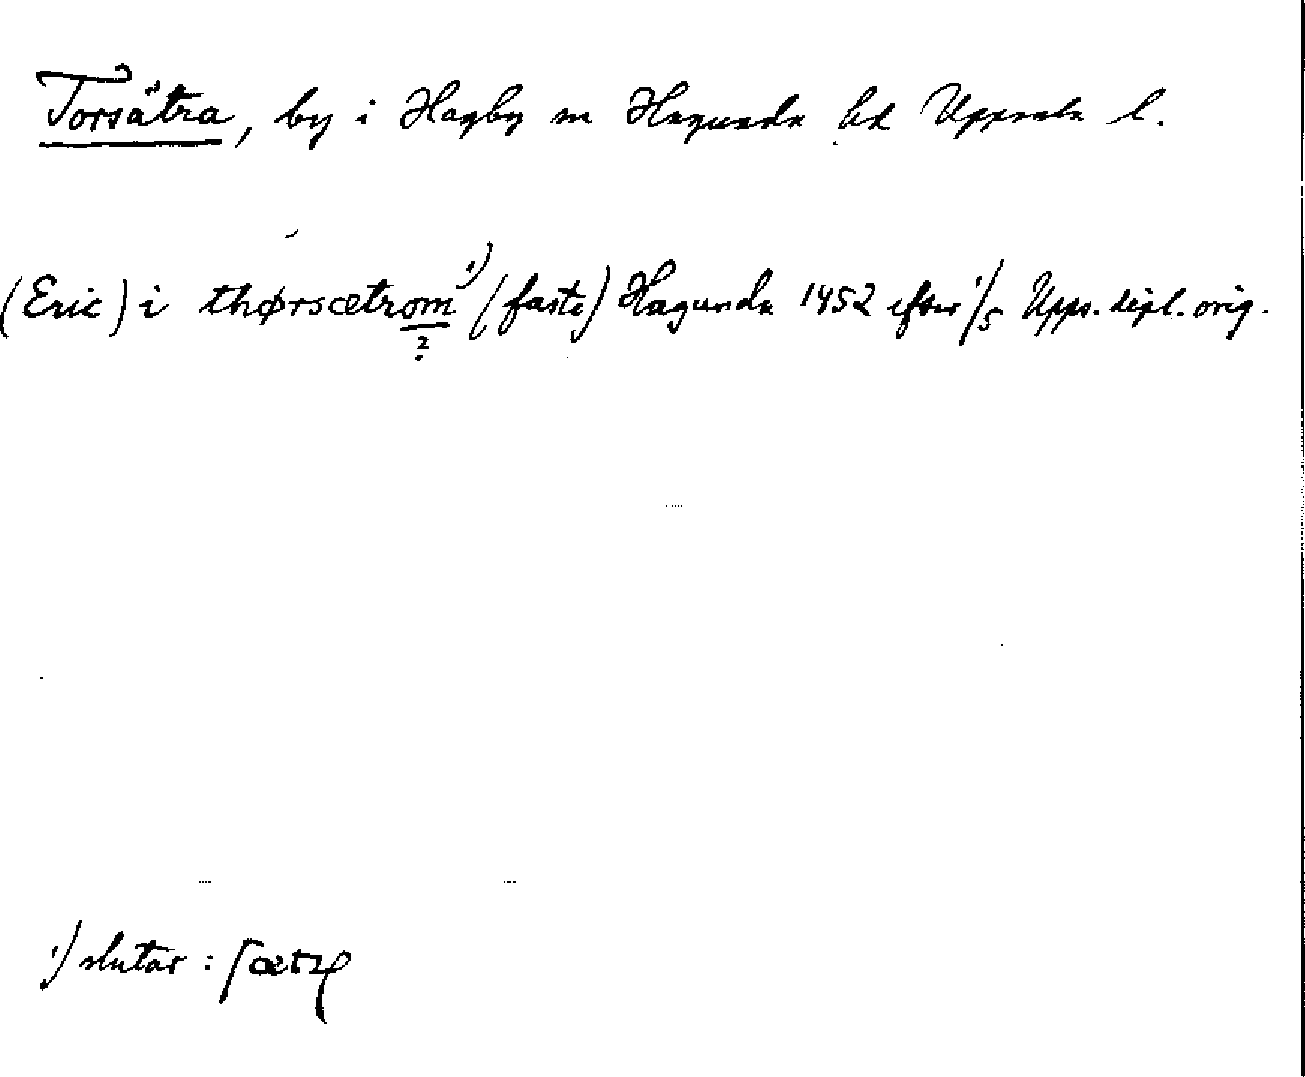 Torsätra, by i Hagby sn Hagunda hd Uppsala l.
(Eric) i thørsætrom ¹⁾ (faste) Hagunda 1452 efter 1/5 Upps. dipl. orig.
?
¹⁾ slutar : ſætr